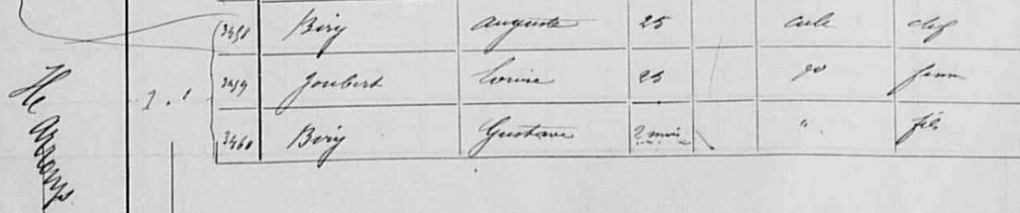 3458 Biry Auguste 25 cult chef
3459 Joubert Louise 25 do femme
3460 Biry Gustave 2 mois " fils
1 . 1